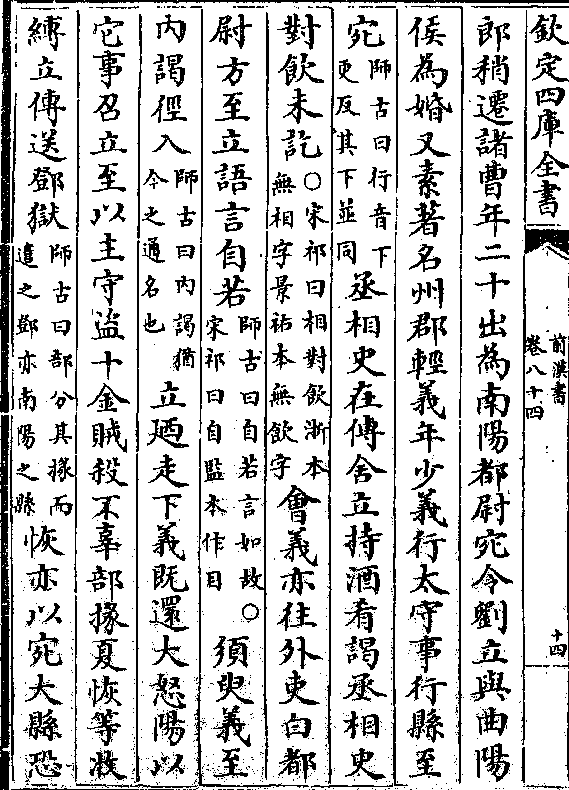 欽定四庫全書
前漢書
卷八十四
十四
郎稍遷諸曹年二十出為南陽都尉宛令劉立與曲陽
侯為婚又素著名州郡輕義年少義行太守事行縣至
宛師古曰行音下更反其下並同丞相史在傳舍立持酒肴謁丞相史
對飲未訖○宋祁曰相對飲浙本無相字景祐本無飲字會義亦往外吏白都
尉方至立語言自若師古曰自若言如故○宋祁曰自監本作目須臾義至
內謁徑入師古曰內謁猶今之通名也立廼走下義既還大怒陽以
它事召立至以主守盜十金賊殺不辜部掾夏恢等收
縛立傳送鄧獄師古曰部分其掾而遣之鄧亦南陽之縣恢亦以宛大縣恐